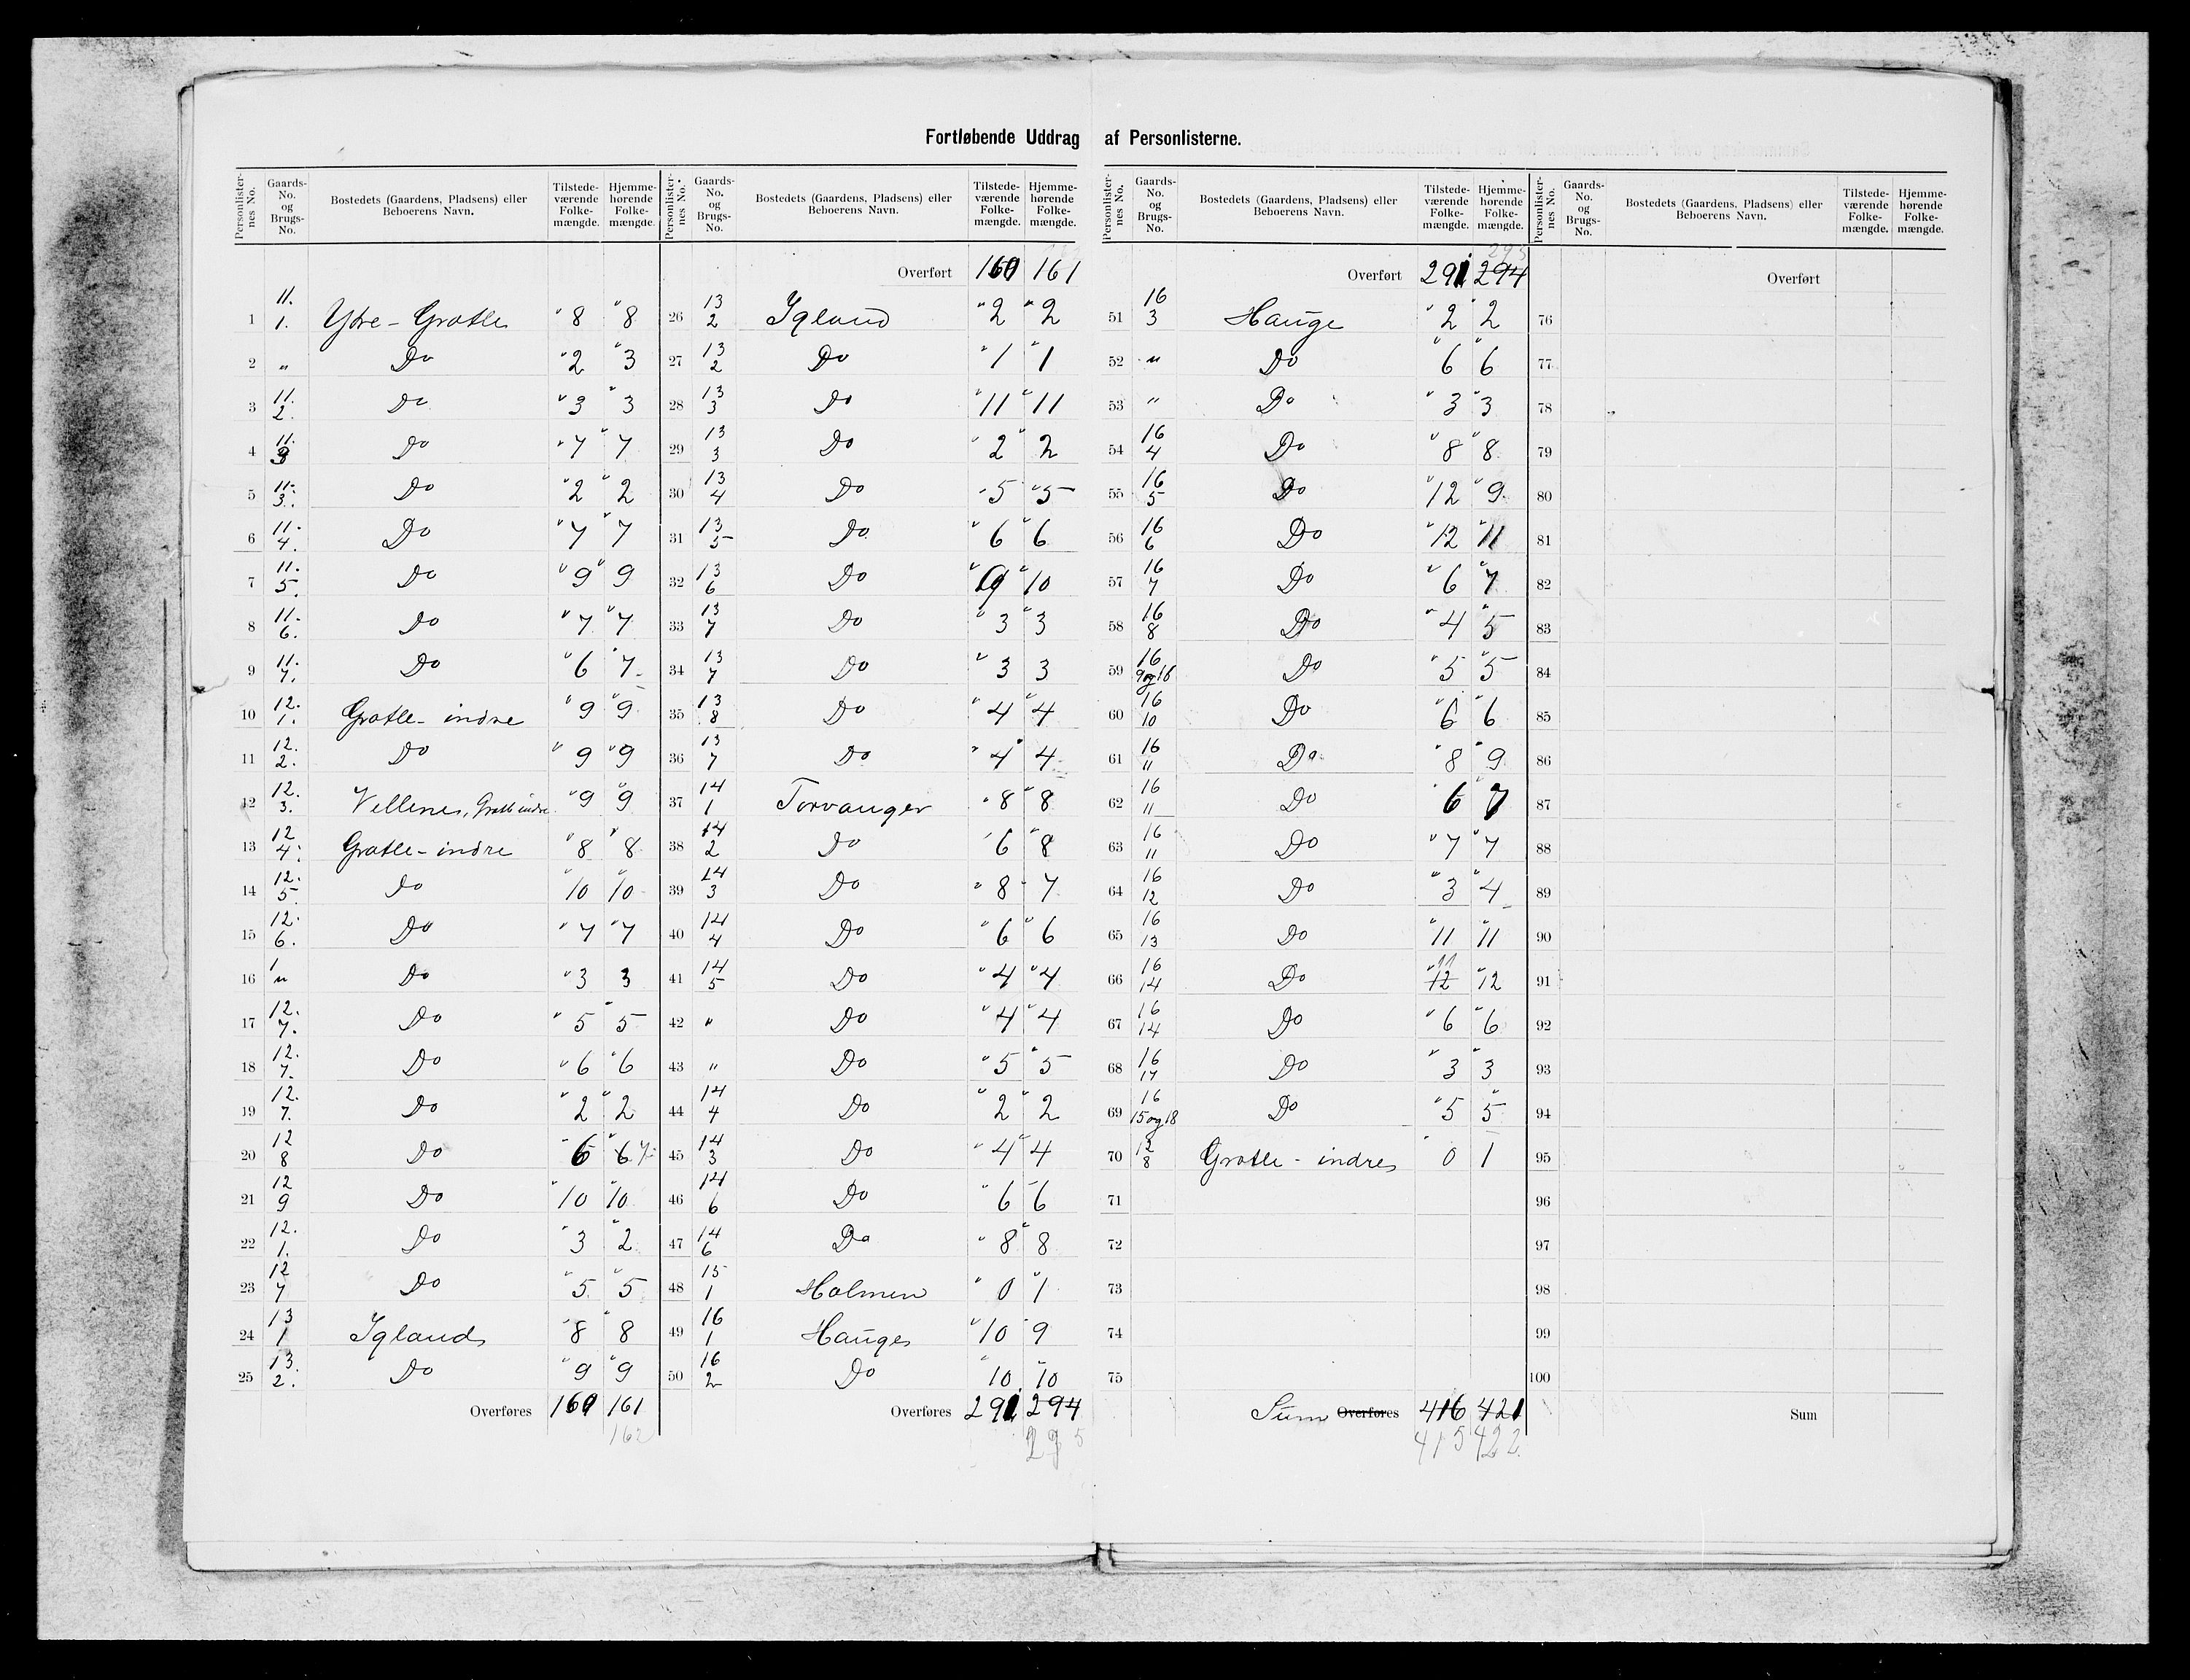 Fortløbende Uddrag af Personlisterne.
Personlisternes No. Gaards-No. og Brugs-No. Bostedets (Gaardens, Pladsens) eller Beboerens Navn. Tilstedeværende Folkemængde. Hjemmehørende Folkemængde.
1 11. 1. Ytre-Grotle " 8 " 8
2 " Do " 2 " 3
3 11. 2. Do " 3 " 3
4 11. 3 Do " 7 " 7
5 11. 3. Do " 2 " 2
6 11. 4. Do " 7 " 7
7 11. 5. Do " 9 " 9
8 11. 6. Do " 7 " 7
9 11. 7. Do " 6 " 7
10 12. 1. Grotle-indre " 9 " 9
11 12. 2. Do " 9 " 9
12 12. 3. Vellene, Grotle indre " 9 " 9
13 12 4. Grotle-indre " 8 " 8
14 12. 5. Do " 10 " 10
15 12. 6. Do " 7 " 7
16 " Do " 3 3
17 12. 7. Do " 5 " 5
18 12. 7. Do " 6 " 6
19 12. 7. Do " 2 " 2
20 12 8 Do " 6 " 6 7
21 12 9 Do " 10 " 10
22 12. 1. Do " 3 " 2
23 12 7 Do " 5 " 5
24 13 1 Igland " 8 " 8
25 13. 2. Do " 9 " 9
Overføres 160 161
162
Personlisternes No. Gaards-No. og Brugs-No. Bostedets (Gaardens, Pladsens) eller Beboerens Navn. Tilstedeværende Folkemængde. Hjemmehørende Folkemængde.
Overført 160 161
26 13 2 Igland " 2 " 2
27 13 2 Do " 1 " 1
28 13 3 Do " 11 " 11
29 13 3 Do " 2 " 2
30 13 4 Do " 5 " 5
31 13 5 Do " 6 " 6
32 13 6 Do " 9 " 10
33 13 7 Do " 3 " 3
34 13 7 Do " 3 3
35 13 8 Do " 4 " 4
36 13 7 Do " 4 " 4
37 14 1 Torvanger " 8 " 8
38 14 2 Do " 6 " 8
39 14 3 Do " 8 " 7
40 14 4 Do " 6 " 6
41 14 5 Do " 4 " 4
42 " Do " 4 " 4
43 " Do " 5 " 5
44 14 4 Do " 2 " 2
45 14 3 Do " 4 " 4
46 14 6 Do " 6 " 6
47 14 6 Do " 8 " 8
48 15 1 Holmen " 0 " 1
49 16 1 Hauge " 10 " 9
50 16 2 Do " 10 " 10
Overføres 291 294
295
Personlisternes No. Gaards-No. og Brugs-No. Bostedets (Gaardens, Pladsens) eller Beboerens Navn. Tilstedeværende Folkemængde. Hjemmehørende Folkemængde.
295
Overført 291 294
51 16 3 Hauge " 2 " 2
52 " Do " 6 " 6
53 " Do " 3 " 3
54 16 4 Do " 8 " 8
55 16 5 Do " 12 " 9
56 16 6 Do " 12 " 11
57 16 7 Do " 6 " 7
58 16 8 Do " 4 " 5
59 16 9 og 16 Do " 5 " 5
60 16 10 Do " 6 " 6
61 16 11 Do " 8 " 9
62 16 11 Do " 6 " 7
63 16 11 Do " 7 " 7
64 16 12 Do " 3 " 4
65 16 13 Do " 11 " 11
66 16 14 Do " 12 11 " 12
67 16 14 Do " 6 " 6
68 16 17 Do " 3 " 3
69 16 15 og 18 Do " 5 " 5
70 12 8 Grotle-indre " 0 1
71
72
73
74
75
Sum Overføres 416 421
415 422
Personlisternes No. Gaards-No. og Brugs-No. Bostedets (Gaardens, Pladsens) eller Beboerens Navn. Tilstedeværende Folkemængde. Hjemmehørende Folkemængde.
Overført
76
77
78
79
80
81
82
83
84
85
86
87
88
89
90
91
92
93
94
95
96
97
98
99
100
Sum